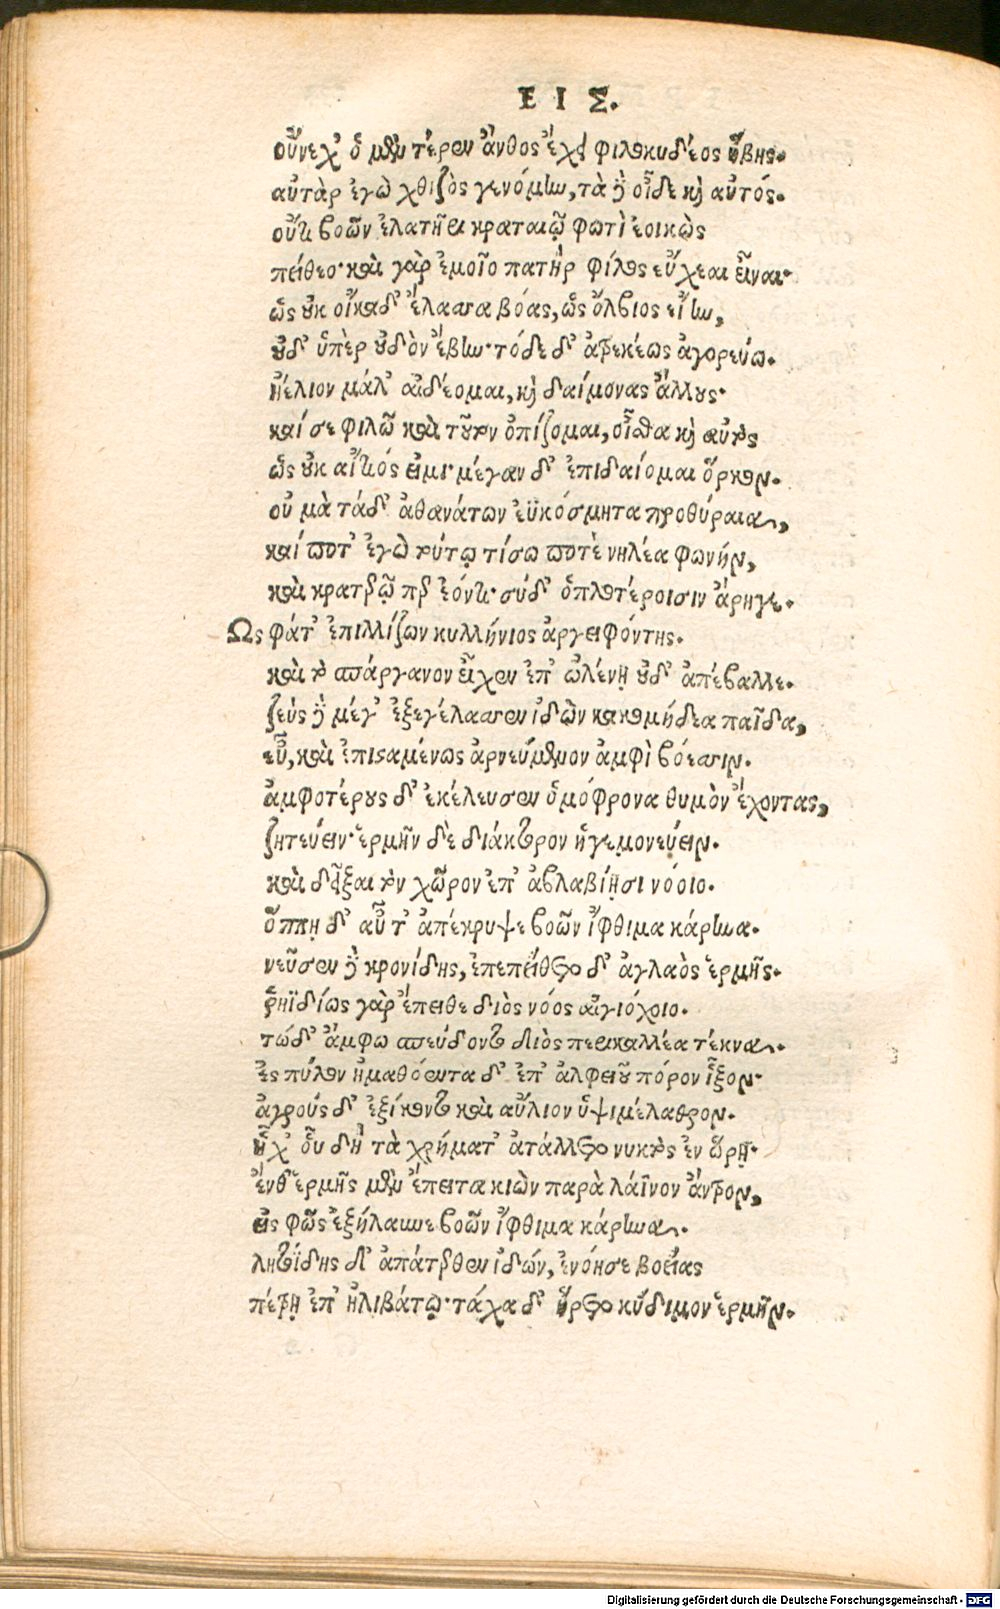 ΕΙΣ.
οὕνεχ' ὁ μὲν τέρεν ἄνθος ἔχει φιλοκυδέος ἥβης.
αὐτὰρ ἐγὼ χθιζὸς γενόμην, τὰ δὲ οἶδε καὶ αὐτός.
οὔτι βοῶν ἐλατῆρι κραταιῷ φωτὶ ἐοικὼς
πείθεο· καὶ γὰρ ἐμοῖο πατὴρ φίλος εὔχεαι εἶναι·
ὡς οὐκ οἴκαδ' ἔλασσα βόας, ὡς ὄλβιος εἴην,
οὐδ' ὑπὲρ οὐδὸν ἔβην· τόδε δ' ἀτρεκέως ἀγορεύω.
ἠέλιον μάλ' αἰδέομαι, καὶ δαίμονας ἄλλους·
καί σε φιλῶ καὶ τοῦτον ὀπίζομαι, οἶσθα καὶ αὐτὸς
ὡς οὐκ αἴτιός εἰμι· μέγαν δ' ἐπιδαίομαι ὅρκον.
οὐ μὰ τάδ' ἀθανάτων ἐϋκόσμητα προθύραια,
καί ποτ' ἐγὼ τούτῳ τίσω ποτὲ νηλέα φωνήν,
καὶ κρατερῷ περ ἐόντι· σύδ' ὁπλοτέροισιν ἄρηγε.
Ὣς φάτ' ἐπιλλίζων κυλλήνιος ἀργειφόντης.
καὶ τὸ σπάργανον εἶχεν ἐπ' ὠλένῃ οὐδ' ἀπέβαλλε.
ζεὺς δὲ μέγ' ἐξεγέλασσεν ἰδὼν κακομήδεα παῖδα,
εὖ, καὶ ἐπισταμένως ἀρνεύμενον ἀμφὶ βόεσσιν.
ἀμφοτέρους δ' ἐκέλευσεν ὁμόφρονα θυμὸν ἔχοντας,
ζητεύειν· ἑρμῆν δὲ διάκτορον ἡγεμονεύειν.
καὶ δεῖξαι τὸν χῶρον ἐπ' ἀβλαβίῃσι νόοιο.
ὅππῃ δ' αὖτ' ἀπέκρυψε βοῶν ἴφθιμα κάρηνα.
νεῦσεν δὲ κρονίδης, ἐπεπείθετο δ' ἀγλαὸς ἑρμῆς.
ῥηϊδίως γὰρ ἔπειθε διὸς νόος αἰγιόχοιο.
τώδ' ἄμφω σπεύδοντε διὸς περικαλλέα τέκνα.
ἐς πύλον ἠμαθόεντα δ' ἐπ' ἀλφειοῦ πόρον ἷξον·
ἀγροὺς δ' ἐξίκοντο καὶ αὔλιον ὑψιμέλαθρον.
ἧχ' οὗ δὴ τὰ χρήματ' ἀτάλλετο νυκτὸς ἐν ὥρῃ·
ἔνθ' ἑρμῆς μὲν ἔπειτα κιὼν παρὰ λάϊνον ἄντρον,
εἰς φῶς ἐξήλαυνε βοῶν ἴφθιμα κάρηνα.
λητοΐδης δ' ἀπάτερθεν ἰδών, ἐνόησε βοείας
πέτρῃ ἐπ' ἠλιβάτῳ· τάχα δ' ἤρετο κύδιμον ἑρμῆν.
Digitalisierung gefördert durch die Deutsche Forschungsgemeinschaft - DFG